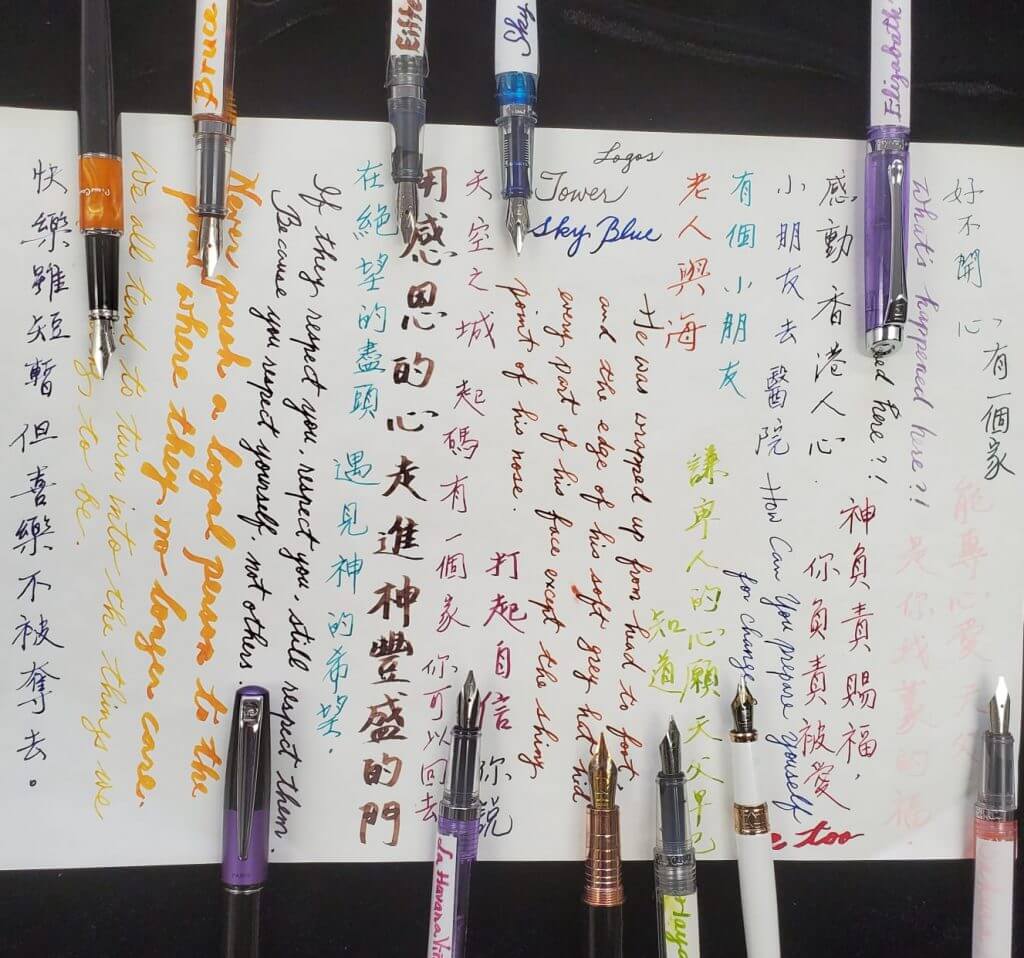 Bruce
Eiffe
Sky
Elizabath
Logos
Tower
Sky Blue
好不開心,
有一個家
能專心愛天父
是你
的福.
What's happened here?!
ned here?!
神負責賜福,
你負責被愛
too
感動香港人心
小朋友去醫院 How Can You prepare yourself
for change
有個小朋友
老人與海
謙卑人的心願天父早已
知道
He was wrapped up from head to foot,
and the edge of his soft grey hat hid
every part of his face except the shiny
point of his nose.
打起自信 你説
天空之城 起碼有一個家 你可以回去
用感恩的心走進神豐盛的門
在絕望的盡頭 遇見神的希望.
If they respect you, respect you, still respect them.
Because you respect yourself. not others.
Never push a loyal person to the
point where they no longer care.
We all tend to turn into the things we
to be.
快樂雖短暫但喜樂不被奪去。
La Havana Vi
Haya
PARIS